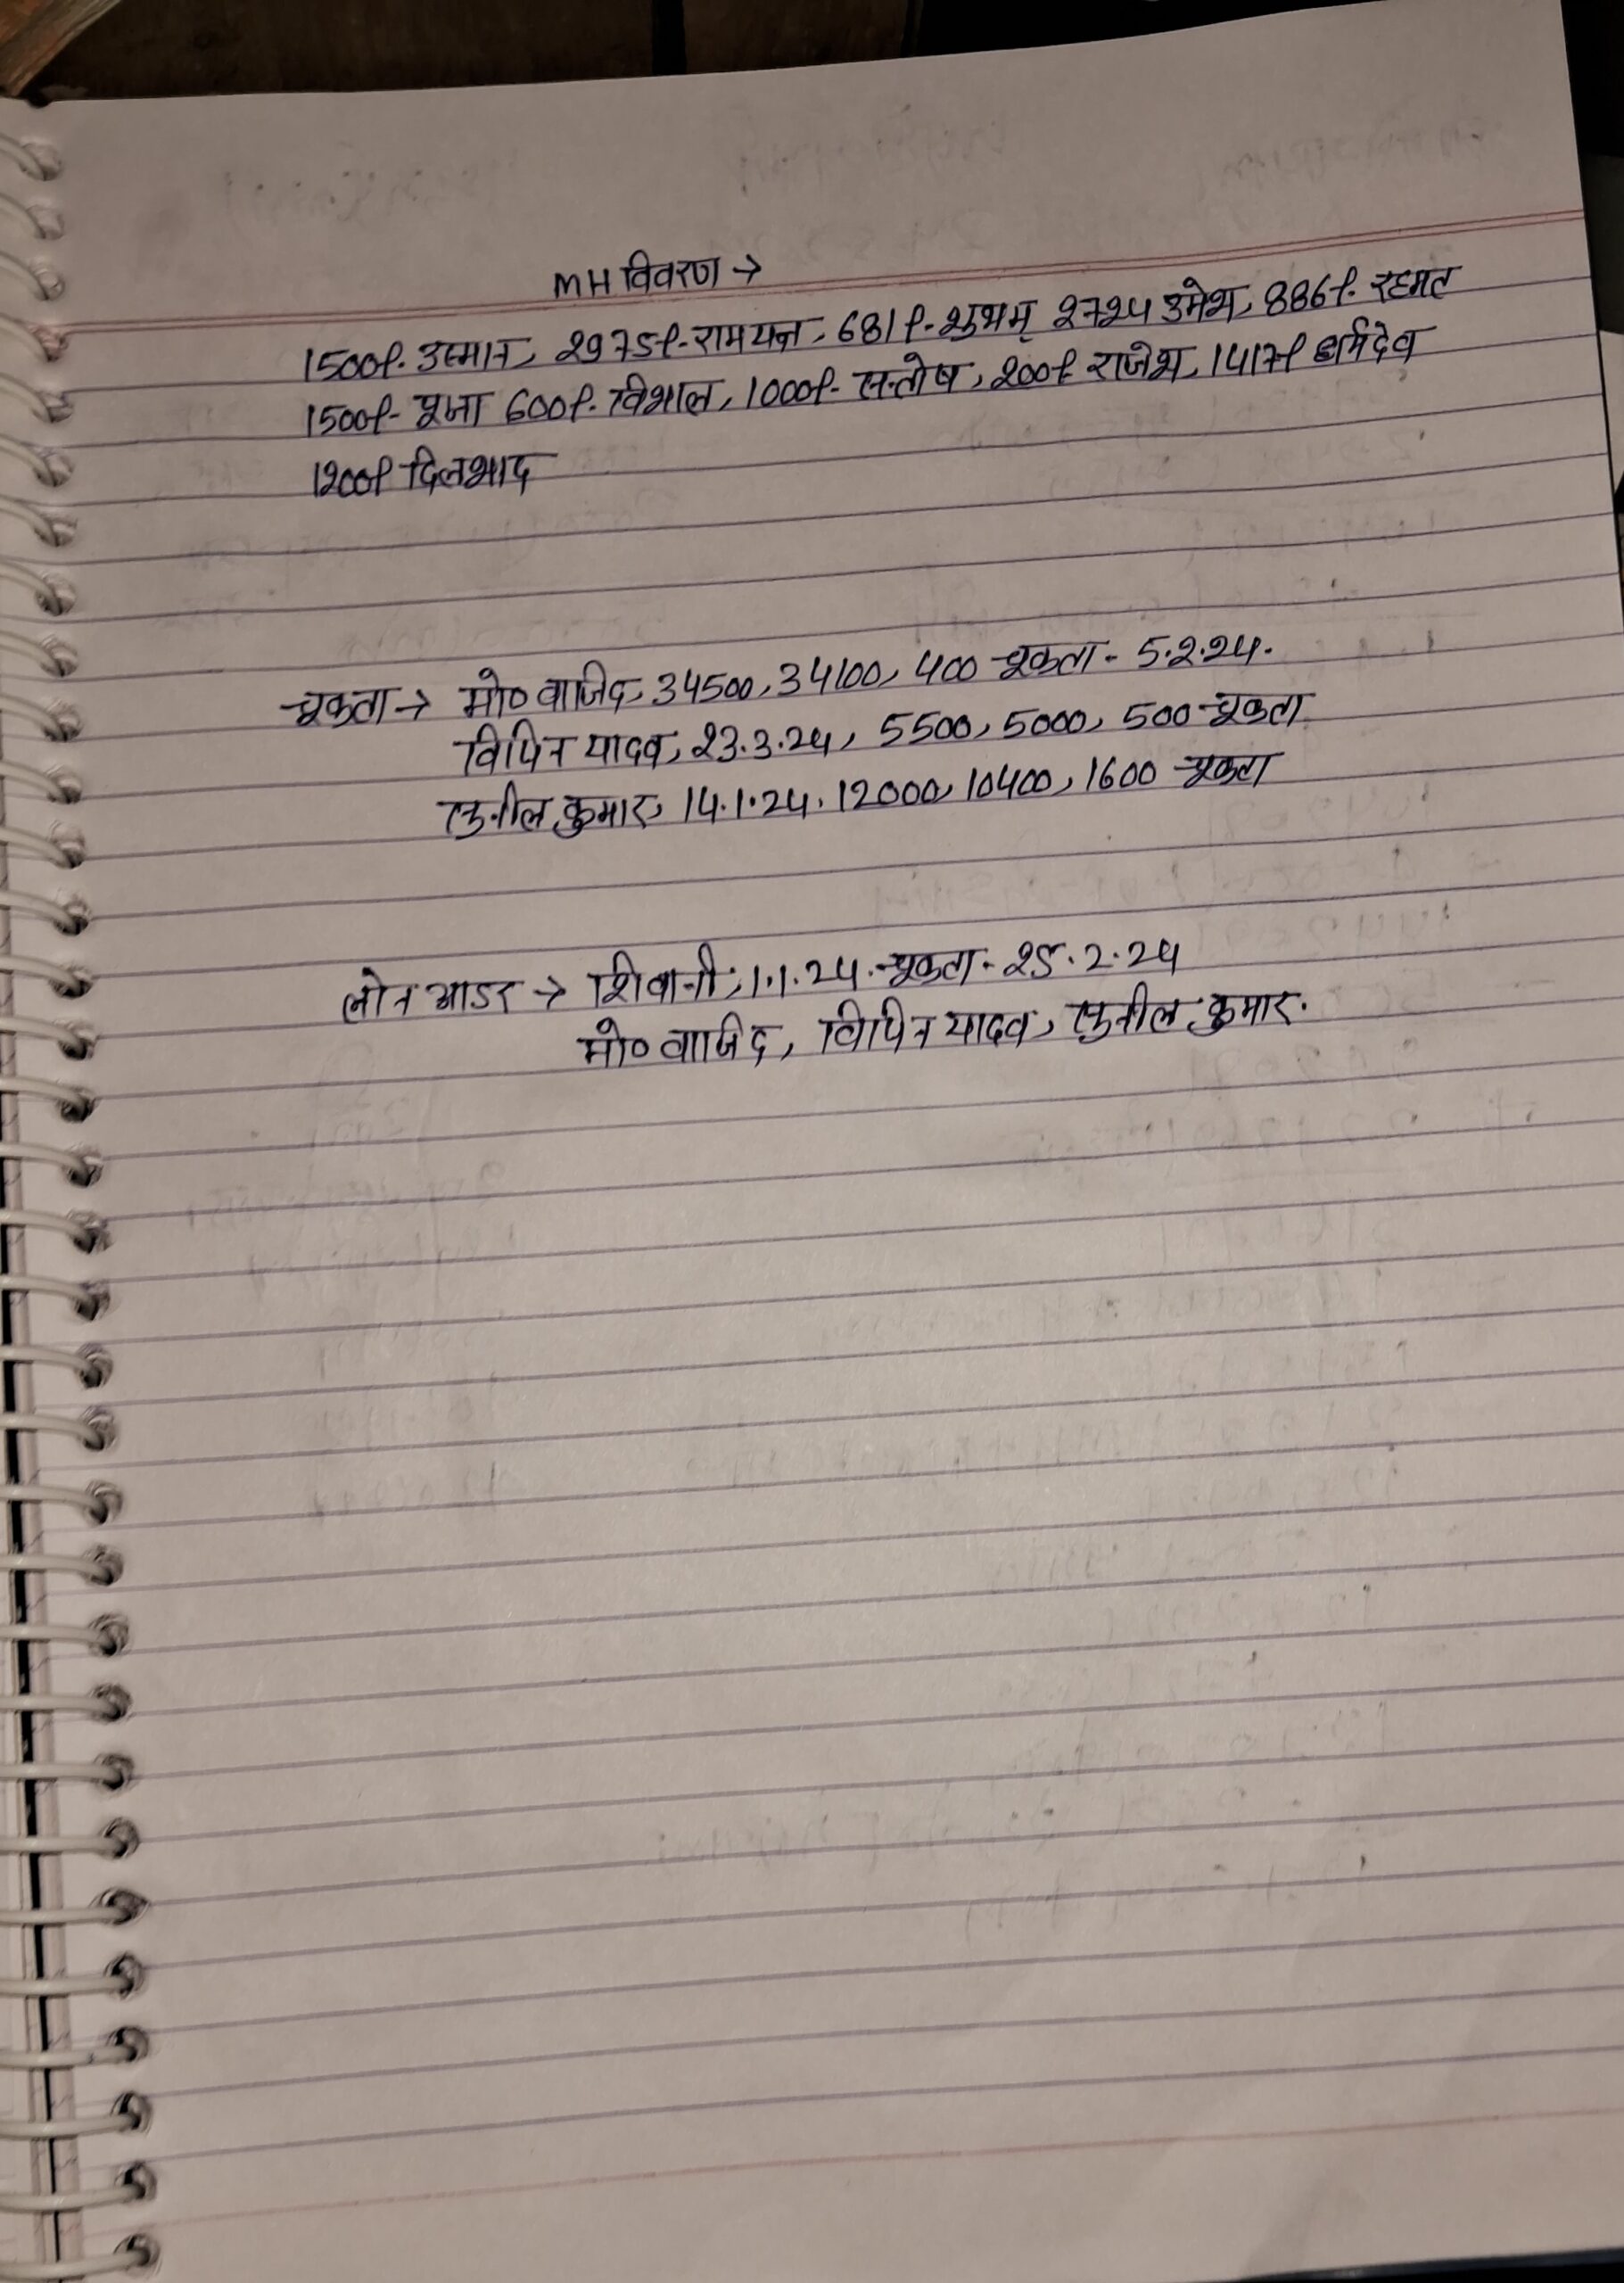 MH विवरण →
1500/- उस्मान, 2975/- रामयज्ञ, 681/- शुभम् 2724 उमेश, 886/- रहमत
1500/- पूजा 600/- विशाल, 1000/- सन्तोष, 200/- राजेश, 1417/- धर्मदेव
1200/- दिलशाद
चूकता → मो० वाजिद, 34500, 34100, 400 चूकता - 5.2.24.
विपिन यादव, 23.3.24, 5500, 5000, 500 चूकता
सुनील कुमार, 14.1.24, 12000, 10400, 1600 चूकता
लोन आडर → शिवानी, 1.1.24. चूकता - 25.2.24
मो० वाजिद, विपिन यादव, सुनील कुमार.